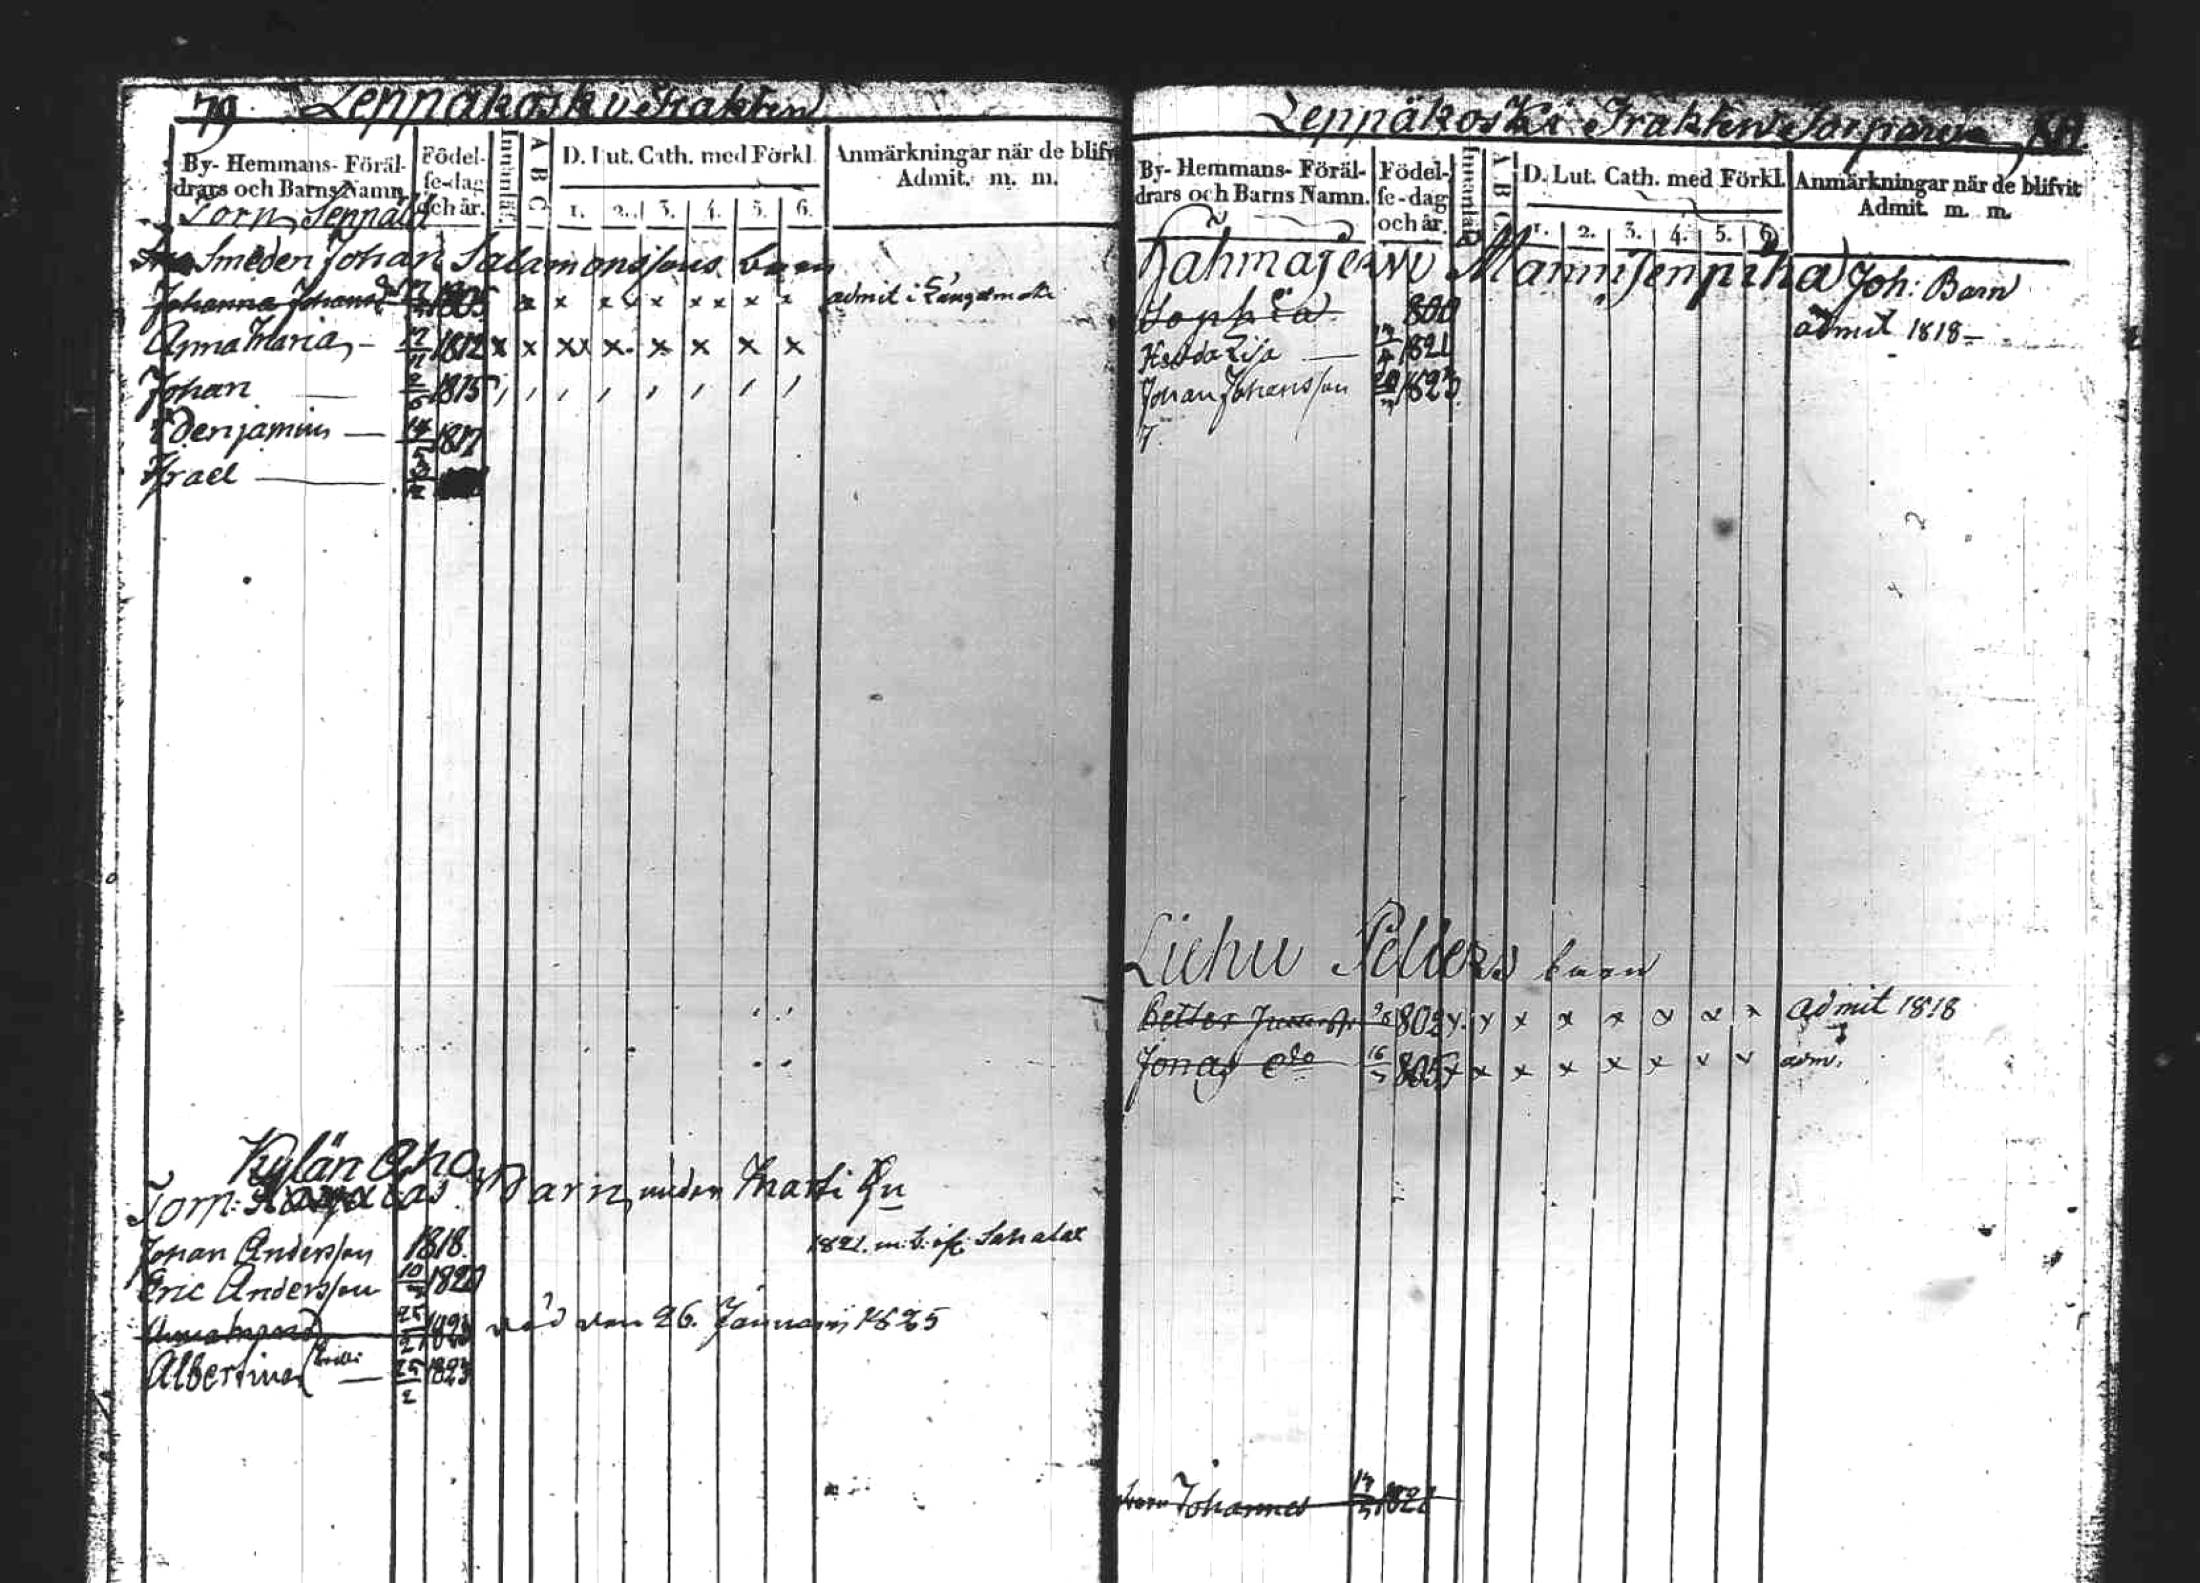 79. Leppäkoski Trakten
By- Hemmans- Föräl-
drars och Barns Namn.
Födel-
se-dag
och år.
Innanläs.
A B C
D. Lut. Cath. med Förkl.
1. 2. 3. 4. 5. 6.
Anmärkningar när de blifvit
Admit. m. m.
Torp, Seppälä
Smeden Johan Salamonssons barn
Johanna Johansd 1805 x x x x x x x x admit i Längelmäki
Anna Maria, — 1812 x x xx x x x x x
Johan — 1815
Benjamin — 14/5 1817
Israel —
Kylän Aho
Torp: Barn, under Matti
Johan Andersson 1818. 1821. m. b. if. Sahalax
Eric Andersson 1820
25/2 1823 död den 26. Januarii 1825
Albertina — 25/2 1823
Leppäkoski Trakten Torpare 80
By- Hemmans- Föräl-
drars och Barns Namn.
Födel-
se-dag
och år.
Innanläs.
A B C
D. Lut. Cath. med Förkl.
1. 2. 3. 4. 5. 6.
Anmärkningar när de blifvit
Admit. m. m.
Mannisenpiha Joh: Barn
Sophia 800 admit 1818 —
Hedda Lisa — 1821
Johan Johansson 1823
Liehu Petters barn
Petter 802 x x x x x x x x admit 1818
Jonas do 16 805 x x x x x x x x adm.
Johannes 1822